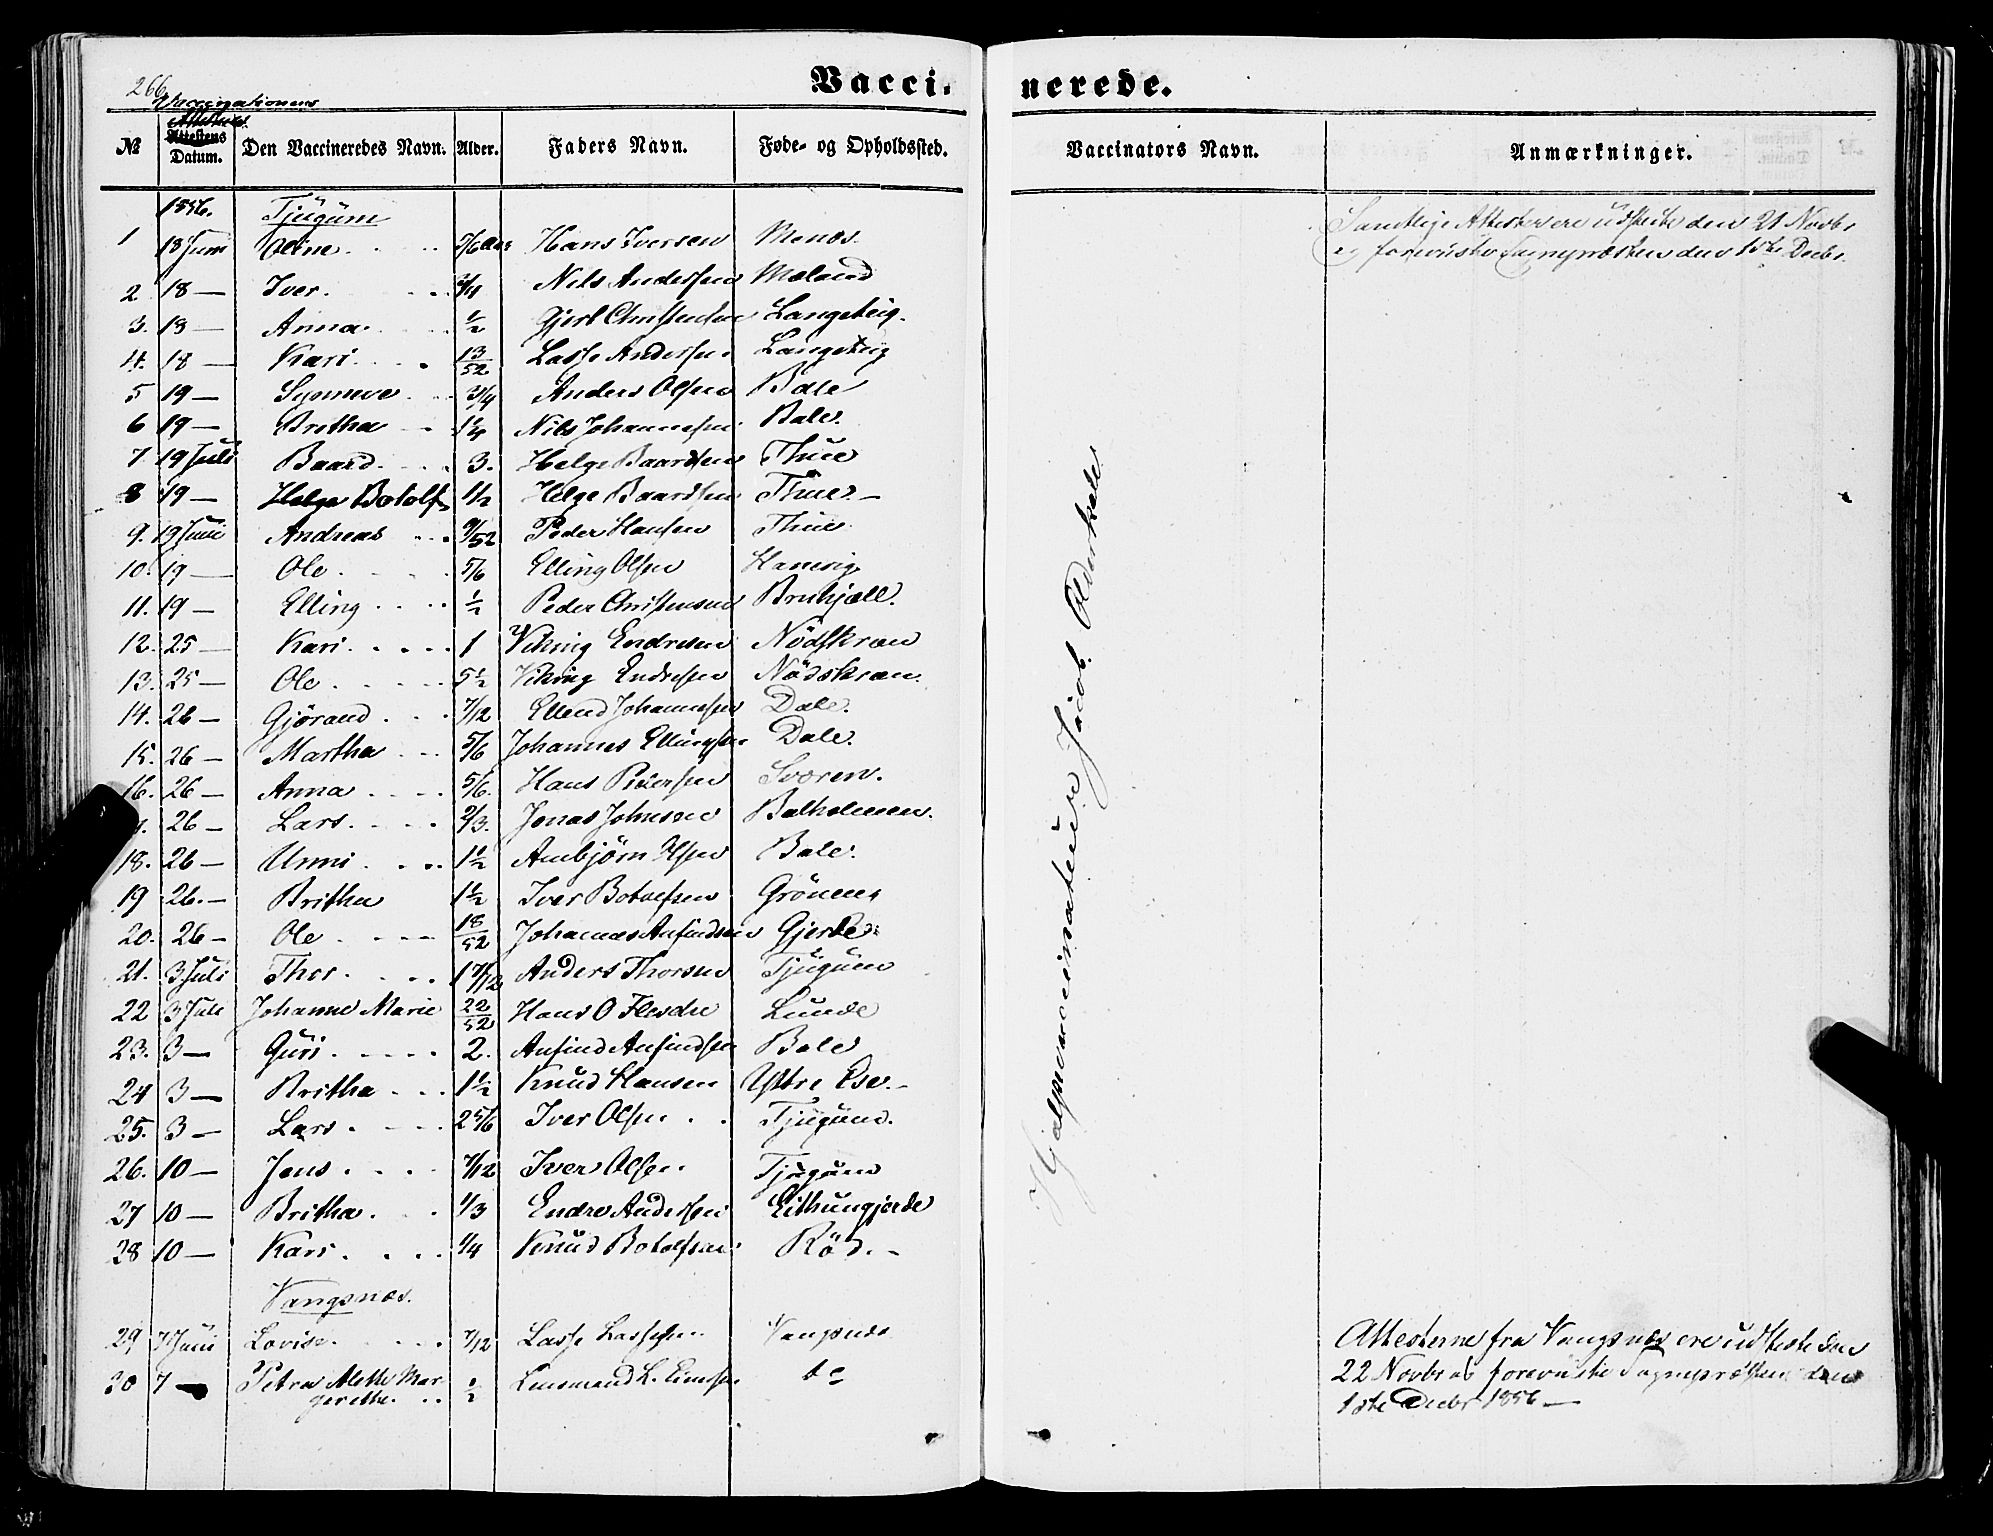 266
Vaccinerede.
Vaccinationens
№ Attestens Datum. Den Vaccineredes Navn. Alder. Faders Navn. Føde- og Opholdssted. Vaccinators Navn. Anmærkninger.
1856. Tjugum
1 18 Juni Oline 5/6 Aar Hans Iversen Menæs.
2 18 — Iver. 3/4 Nils Andersen Mæland
3. 18 — Anna. 1/2 Gjert Christensen Langeteig.
4. 18 — Kari 13/52 Lasse Andersen Langeteig
5 19 — Synneve 3/4 Anders Olsen Bale
6 19 — Britha 1 1/4 Nils Johannesen Bale.
7. 19 Juli Baard. 3. Helge Baardsen Thue
8 19 — Helge Botolf 1 1/2 Helge Baardsen Thue. —
9. 19 Juni Andreas 9/52 Peder Hansen Thue
10. 19 — Ole 5/6 Elling Olsen Hamrig
11. 19 — Elling 1/2 Peder Christensen
12. 25 — Kari 1 Viking Endresen Nödskran
13. 25 — Ole 5 1/2 Viking Endresen Nödskran.
14. 26 — Gjörand 7/12 Ellend Johannesen Dale.
15. 26 — Martha 5/6 Johannes Ellingsen Dale.
16. 26 — Anna 5/6. Hans Pedersen Sværen.
26 — Lars 2/3. Jonas Johnsen Balholmen.
18. 26 — Unni 1 1/2 Ambjörn Olsen Bale.
19 26. — Britha 1 1/2 Iver Botolfsen Grönenes
20. 26 — Ole 18/52 Johannes Anfindsen Gjerde
21. 3 Juli Thor. 1 7/12 Anders Thorsen Tjugum
22 3 Juli Johanne Marie 22/52 Hans O Flesche Lunde
23. 3 — Guri 2. Anfind Anfindsen Bale
24 3 — Britha 1 1/2 Knud Hansen Ystre Ese. —
25. 3 — Lars 2 5/6 Iver Olsen Tjugum.
26. 10 — Jens 7/12 Iver Olsen Tjugum
27 10 — Britha. 1/3 Endre Andersen Eithungjerde
28 10 — Kari 1/4 Knud Botolfsen Röd. —
Vangsnæs.
29 7 Juni Lovise. 7/12 Lasse Lassesen Vangsnæs
30 7 — Petra Alethe Mar- 1/2 Lensmand L.
gerethe.
Hjælpevaccinateur Jacob
Samtlige Attester ere udstedte den 21 Novbr
foreviste Sognepræsten den 1ste Decbr.
Attesterne fra Vangsnæs ere udstedte den
22 Novbr og foreviste Sognepræsten den
1ste Decbr 1856 —